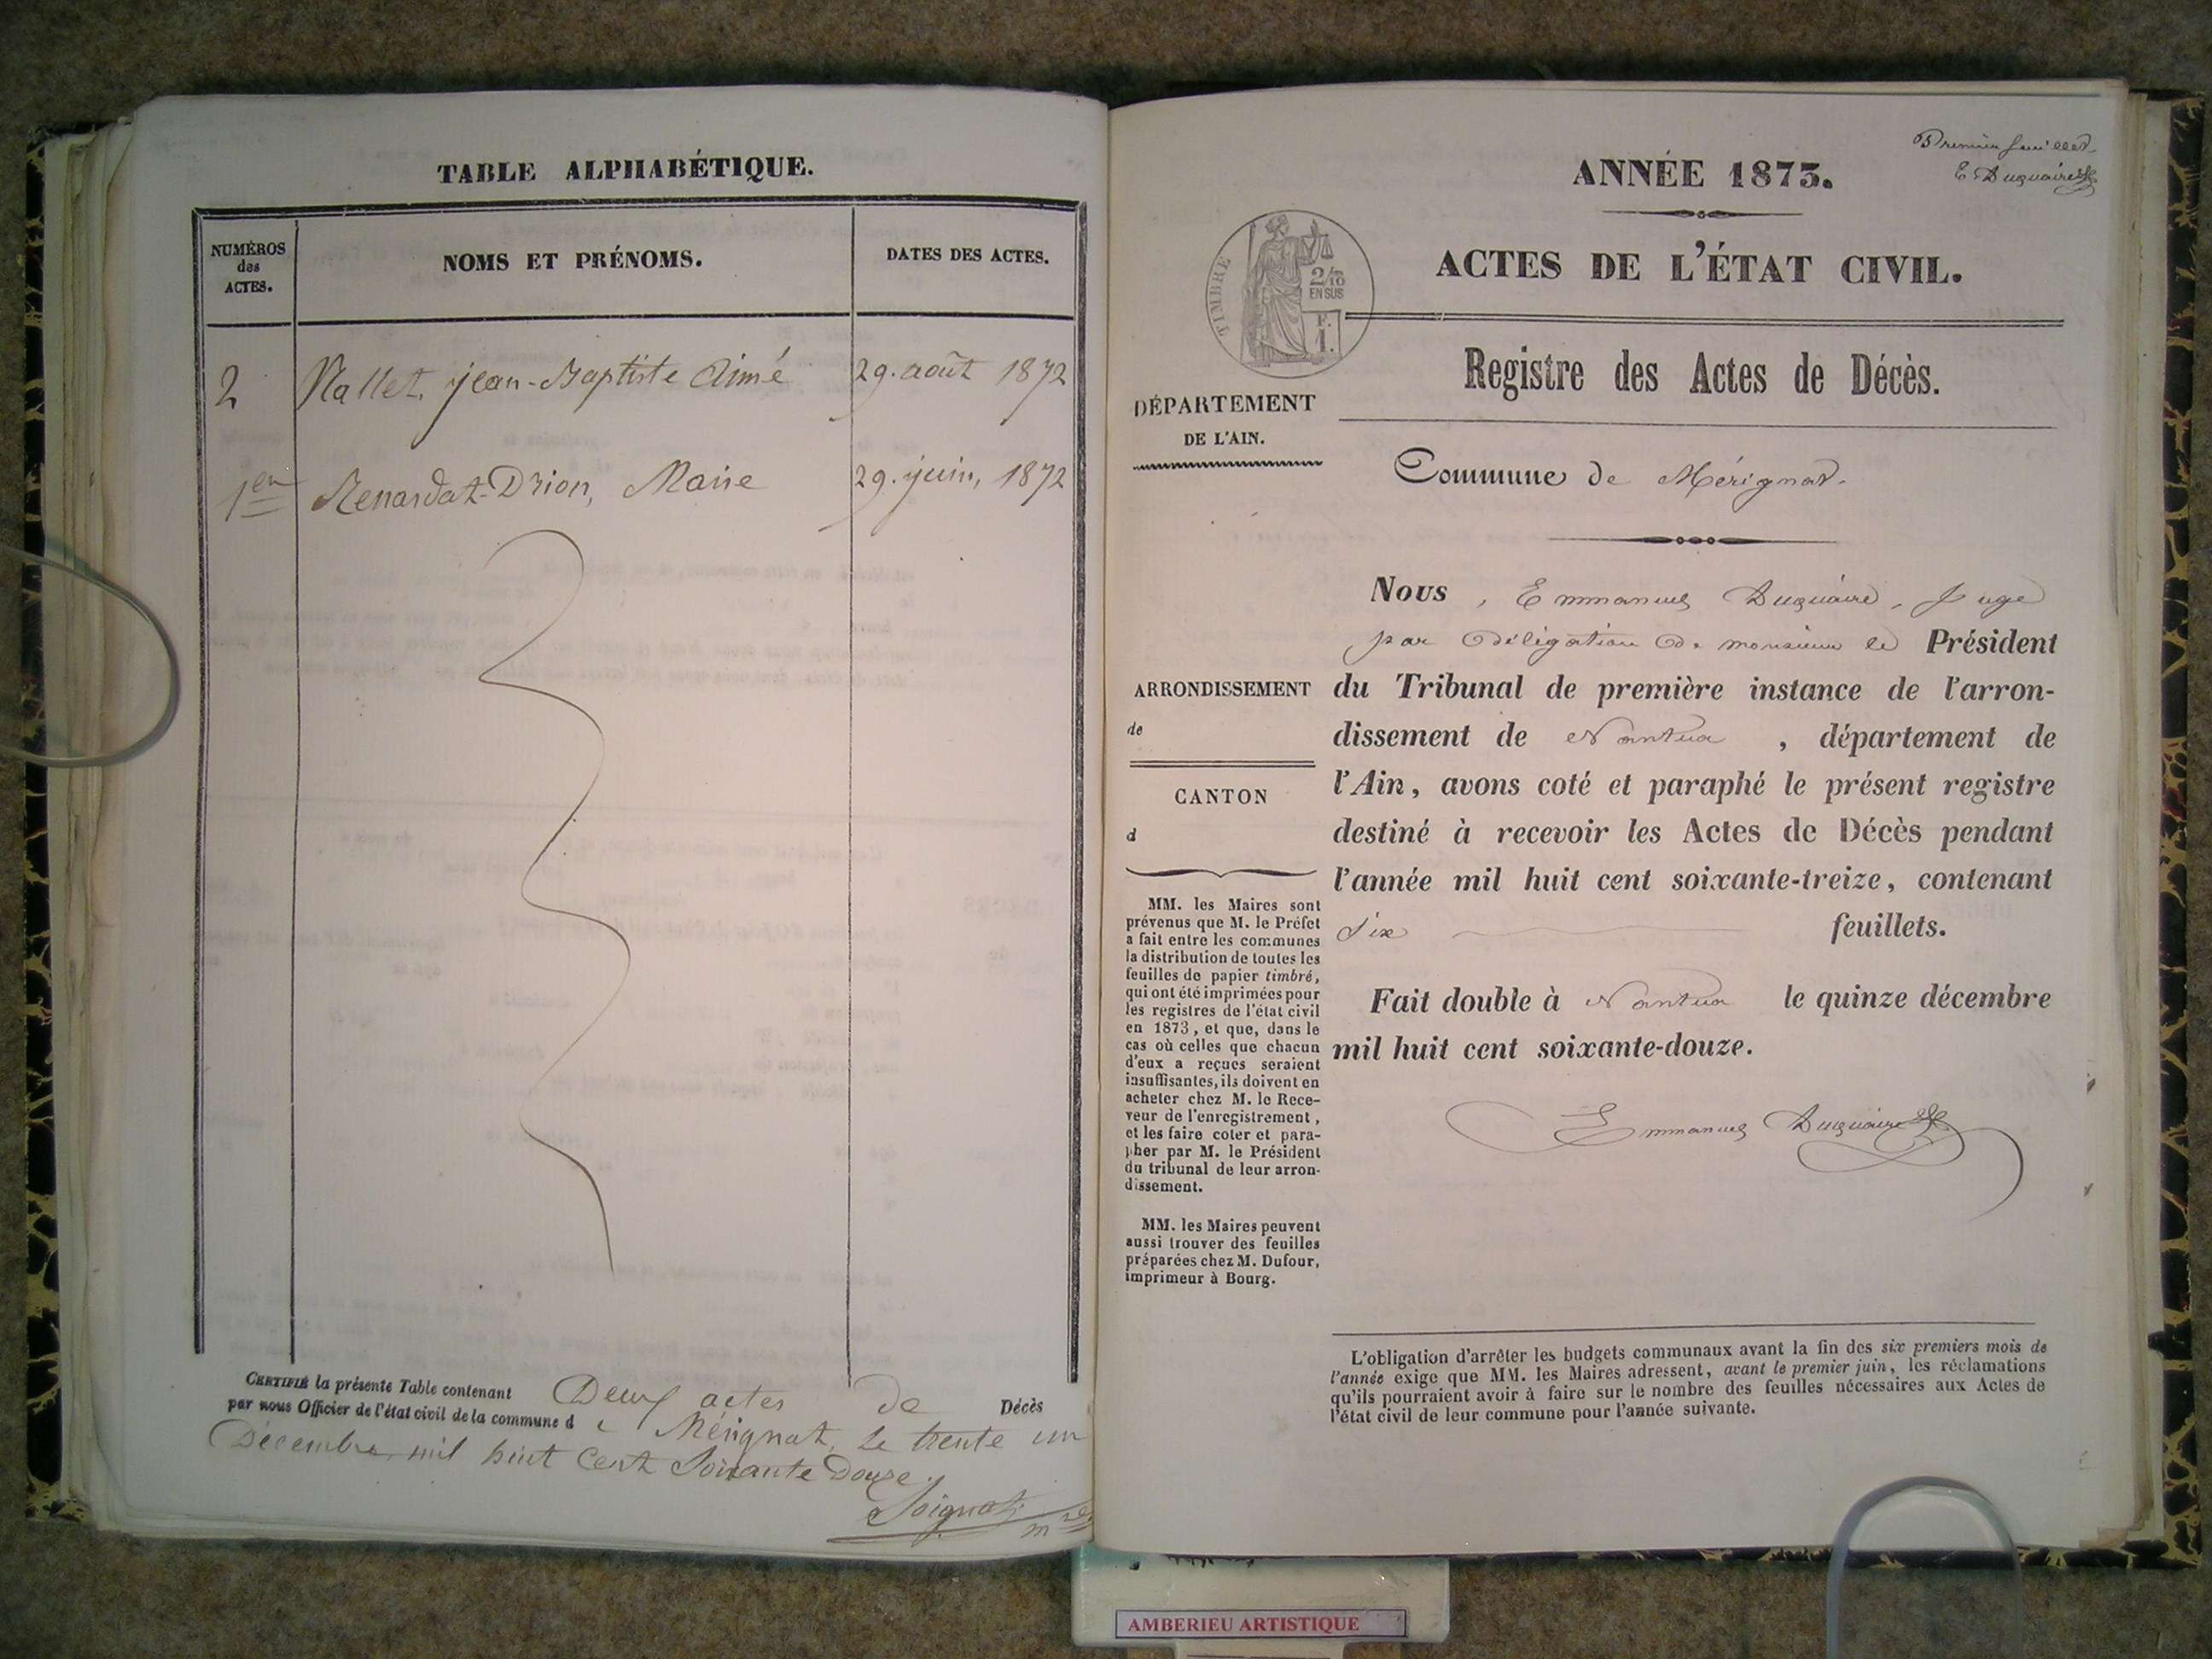 TABLE ALPHABÉTIQUE.
NUMÉROS
des
ACTES.
NOMS ET PRÉNOMS.
DATES DES ACTES.
2 Nallet, jean-Baptiste Aimé 29. août 1872
1er Renardat-Drion, Marie 29. juin, 1872
CERTIFIÉ la présente Table contenant Deux actes de Décès
par nous Officier de l'état civil de la commune d e Mérignat, le trente un
Décembre mil huit Cent Soixante Douze.
Soignat
mre
Premier feuillet.
E Duquaire
ANNÉE 1873.
ACTES DE L'ÉTAT CIVIL.
TIMBRE
2/10
EN SUS
F.
1.
Registre des Actes de Décès.
DÉPARTEMENT
DE L'AIN.
Commune de Mérignat.
Nous, Emmanuel Duquaire, Juge
par délégation de monsieur le Président
du Tribunal de première instance de l'arron-
dissement de Nantua, département de
l'Ain, avons coté et paraphé le présent registre
destiné à recevoir les Actes de Décès pendant
l'année mil huit cent soixante-treize, contenant
Six feuillets.
Fait double à Nantua le quinze décembre
mil huit cent soixante-douze.
Emmanuel Duquaire
ARRONDISSEMENT
de
CANTON
d
MM. les Maires sont
prévenus que M. le Préfet
a fait entre les communes
la distribution de toutes les
feuilles de papier timbré,
qui ont été imprimées pour
les registres de l'état civil
en 1873, et que, dans le
cas où celles que chacun
d'eux a reçues seraient
insuffisantes, ils doivent en
acheter chez M. le Rece-
veur de l'enregistrement,
et les faire coter et para-
pher par M. le Président
du tribunal de leur arron-
dissement.
MM. les Maires peuvent
aussi trouver des feuilles
préparées chez M. Dufour,
imprimeur à Bourg.
L'obligation d'arrêter les budgets communaux avant la fin des six premiers mois de
l'année exige que MM. les Maires adressent, avant le premier juin, les réclamations
qu'ils pourraient avoir à faire sur le nombre des feuilles nécessaires aux Actes de
l'état civil de leur commune pour l'année suivante.
AMBERIEU ARTISTIQUE